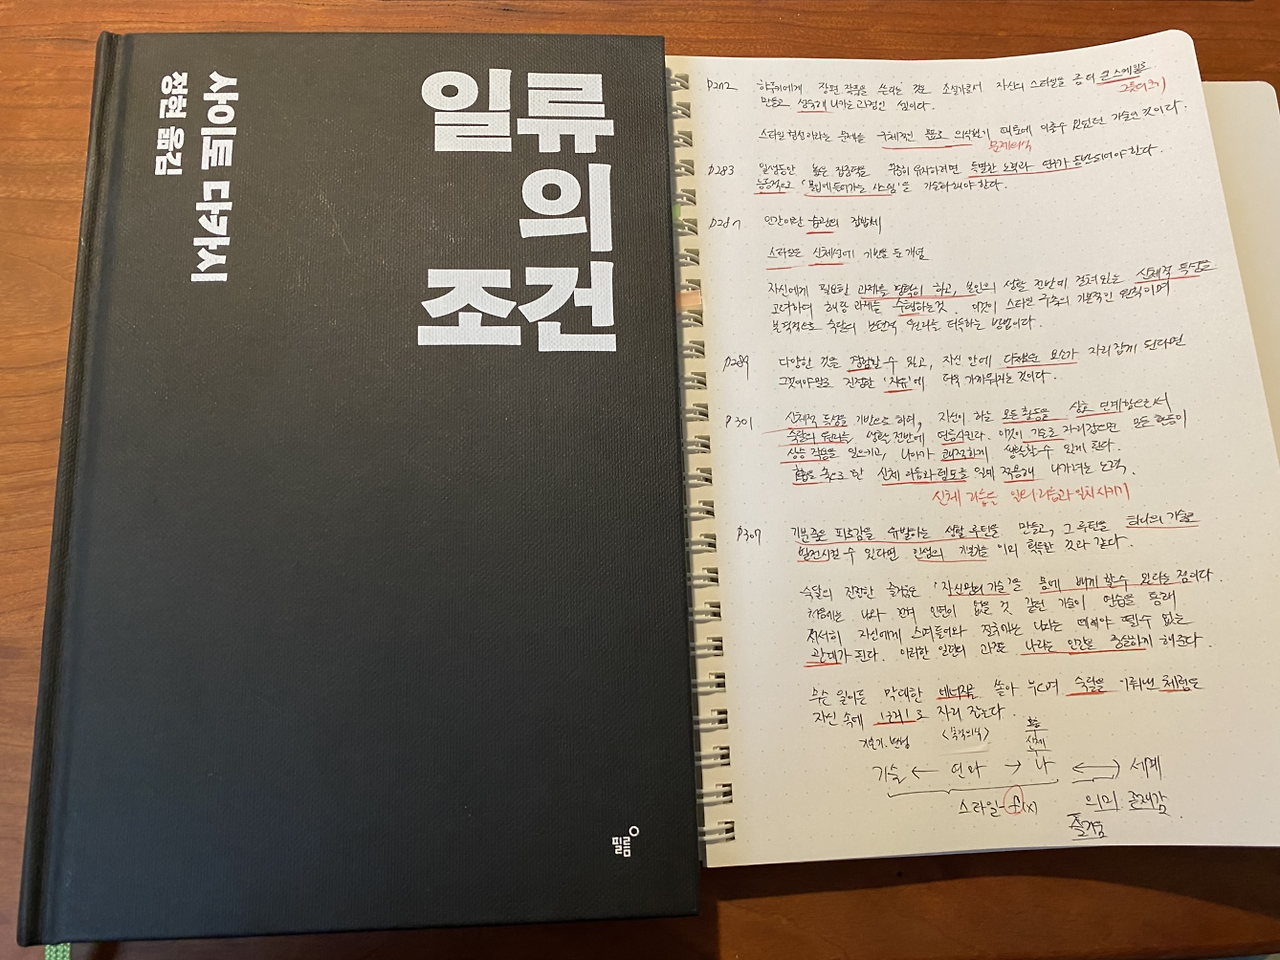 일류
의
조건
사이토 다카시
정현 옮김
필름
p272 하루키에게 장편 작품을 쓰려는 것은 소설가로서 자신의 스타일을 좀 더 큰 스케일로
그릇의 크기
만들고 성숙해 나가는 과정인 셈이다.
스타일 형성이라는 문제를 구체적인 목표로 의식했기 때문에 이룰 수 있었던 기술인 것이다.
문제의식
p283 일생동안 높은 집중력을 꾸준히 유지하려면 특별한 노력과 연구가 동반되어야 한다.
능동적으로 '몰입에 들어가는 시스템'을 기술화해야 한다.
p287 인간이란 습관의 집합체
스타일은 신체성에 기반을 둔 개념
자신에게 필요한 과제를 명확히 하고, 본인의 생활 전반에 걸쳐있는 신체적 특성을
고려하여 해당 과제를 수행하는 것. 이것이 스타일 구축의 기본적인 원칙이며
본격적으로 숙달의 보편적 원리를 터득하는 방법이다.
p289 다양한 것을 경험할 수 있고, 자신 안에 다채로운 요소가 자리잡게 된다면
그것이야말로 진정한 '자유'에 더욱 가까워지는 것이다.
p301 신체적 특성을 기반으로 하여, 자신이 하는 모든 활동을 상호 연계함으로써
숙달의 원리를, 생활 전반에 연동시킨다. 이것이 기술로 자리잡으면 모든 활동이
상승 작용을 일으키고, 나아가 쾌적하게 생활할 수 있게 한다.
축으로 한 신체 리듬과 템포를 일에 적용해 나가려는 노력.
신체 리듬을 일의 리듬과 일치시키기
p307 기분 좋은 피로감을 유발하는 생활 루틴을 만들고, 그 루틴을 하나의 기술로
발전시킬 수 있다면 인생의 기본기를 이미 획득한 것과 같다.
숙달의 진정한 즐거움은 '자신만의 기술'을 몸에 배게 할 수 있다는 점이다.
처음에는 나와 전혀 인연이 없을 것 같던 기술이 연습을 통해
서서히 자신에게 스며들어와 결국에는 나와는 떼려야 뗄 수 없는
관계가 된다. 이러한 일련의 과정은 나라는 인간을 충실하게 해준다.
무슨 일이든 막대한 에너지를 쏟아 부으며 숙달을 이뤄낸 체험은
자신 속에 '나의'로 자리 잡는다.
<목적의식>
신체
기술 ← 연마 → 나 ↔ 세계
스타일 = f(x) 의미 존재감
즐거움